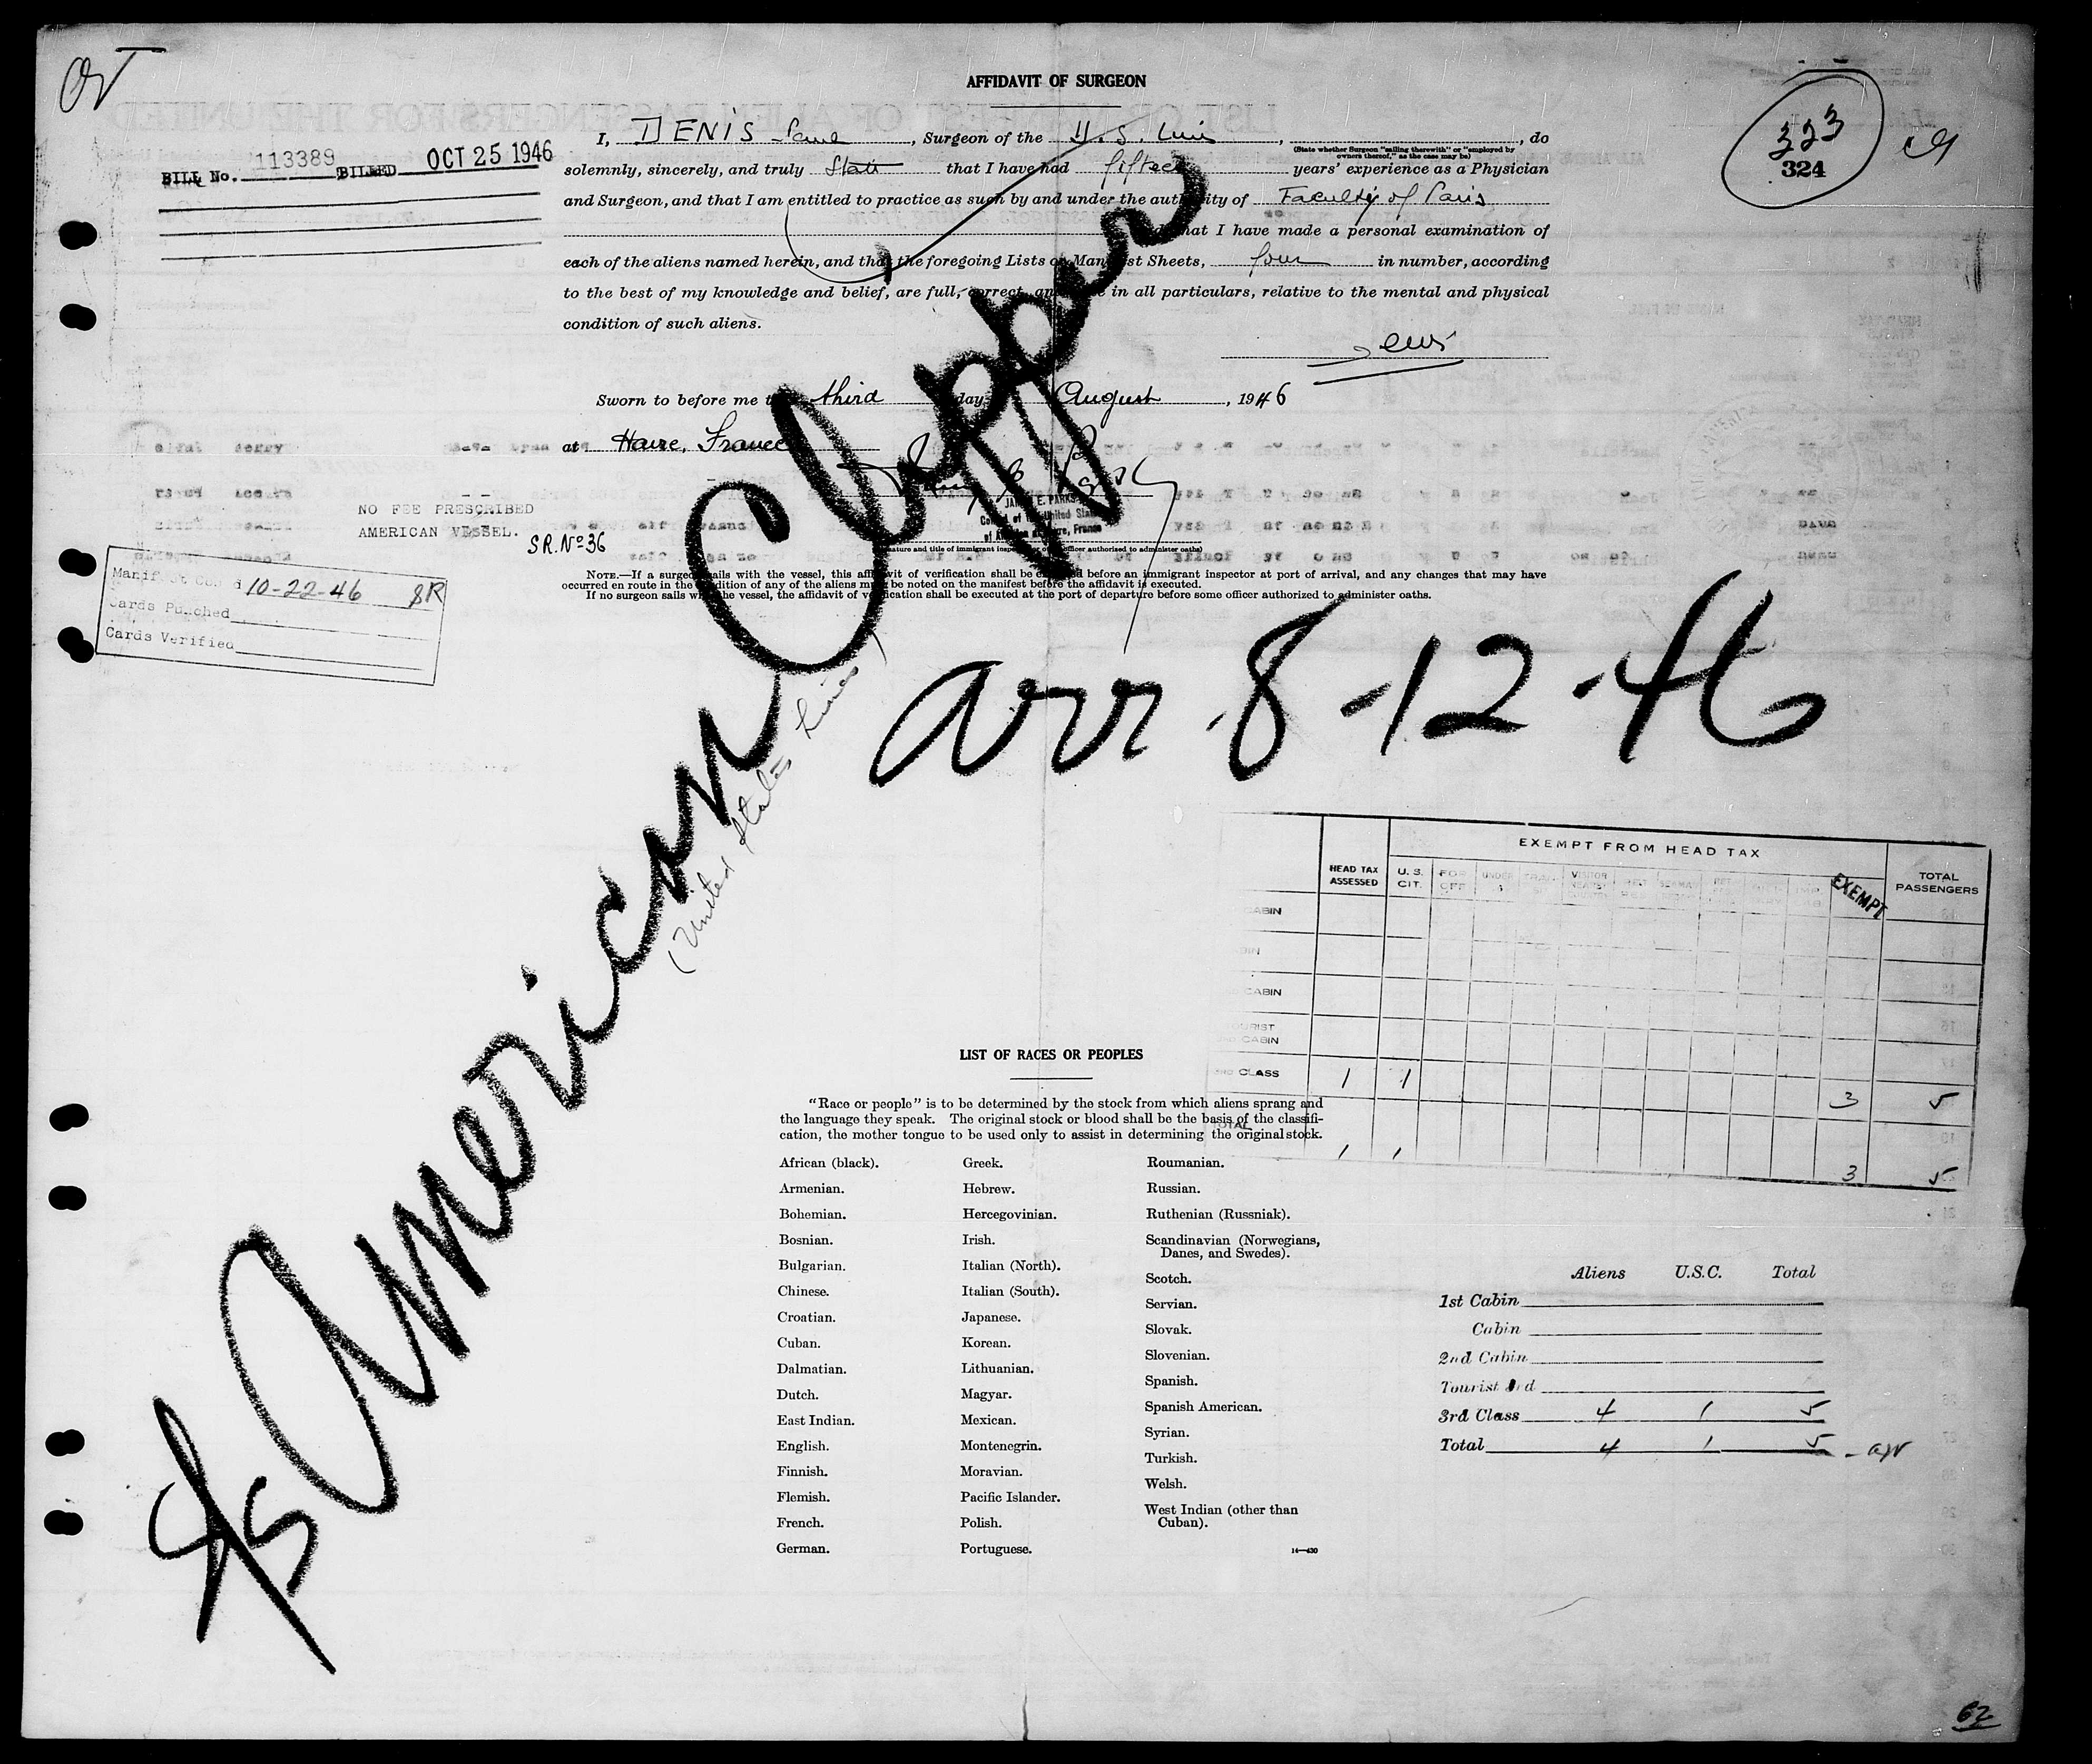 AFFIDAVIT OF SURGEON
I, DENIS Paul, Surgeon of the U.S. Lines, , do
(State whether Surgeon "sailing therewith" or "employed by
owners thereof," as the case may be)
solemnly, sincerely, and truly State that I have had fifteen years' experience as a Physician
and Surgeon, and that I am entitled to practice as such by and under the authority of Faculty of Paris
that I have made a personal examination of
each of the aliens named herein, and that the foregoing Lists or Manifest Sheets, four in number, according
to the best of my knowledge and belief, are full, correct, and in all particulars, relative to the mental and physical
condition of such aliens.
Denis
Sworn to before me third day August, 1946
at Havre, France
BILL No. 113389 BILLED OCT 25 1946
323
324
NO FEE PRESCRIBED
AMERICAN VESSEL.
S.R. Nº 36
JAMES E. PARKS
of the United States
of America at Havre, France
(Signature and title of immigrant inspector or officer authorized to administer oaths)
NOTE.—If a surgeon sails with the vessel, this affidavit of verification shall be executed before an immigrant inspector at port of arrival, and any changes that may have
occurred en route in the condition of any of the aliens must be noted on the manifest before the affidavit is executed.
If no surgeon sails with the vessel, the affidavit of verification shall be executed at the port of departure before some officer authorized to administer oaths.
Manifest Coded 10-22-46 SR
Cards Punched
Cards Verified
S/S American Clipper
(United States Lines)
arr. 8-12-46
EXEMPT FROM HEAD TAX
HEAD TAX ASSESSED U.S. CIT. FOR OFF UNDER EXEMPT TOTAL PASSENGERS
CABIN
CABIN
TOURIST
CABIN
CLASS 1 1 3 5
TOTAL 1 1 3 5
LIST OF RACES OR PEOPLES
"Race or people" is to be determined by the stock from which aliens sprang and
the language they speak. The original stock or blood shall be the basis of the classifi-
cation, the mother tongue to be used only to assist in determining the original stock.
African (black).
Armenian.
Bohemian.
Bosnian.
Bulgarian.
Chinese.
Croatian.
Cuban.
Dalmatian.
Dutch.
East Indian.
English.
Finnish.
Flemish.
French.
German.
Greek.
Hebrew.
Hercegovinian.
Irish.
Italian (North).
Italian (South).
Japanese.
Korean.
Lithuanian.
Magyar.
Mexican.
Montenegrin.
Moravian.
Pacific Islander.
Polish.
Portuguese.
Roumanian.
Russian.
Ruthenian (Russniak).
Scandinavian (Norwegians,
Danes, and Swedes).
Scotch.
Servian.
Slovak.
Slovenian.
Spanish.
Spanish American.
Syrian.
Turkish.
Welsh.
West Indian (other than
Cuban).
14—430
Aliens U.S.C. Total
1st Cabin
Cabin
2nd Cabin
Tourist 3rd
3rd Class 4 1 5
Total 4 1 5
62